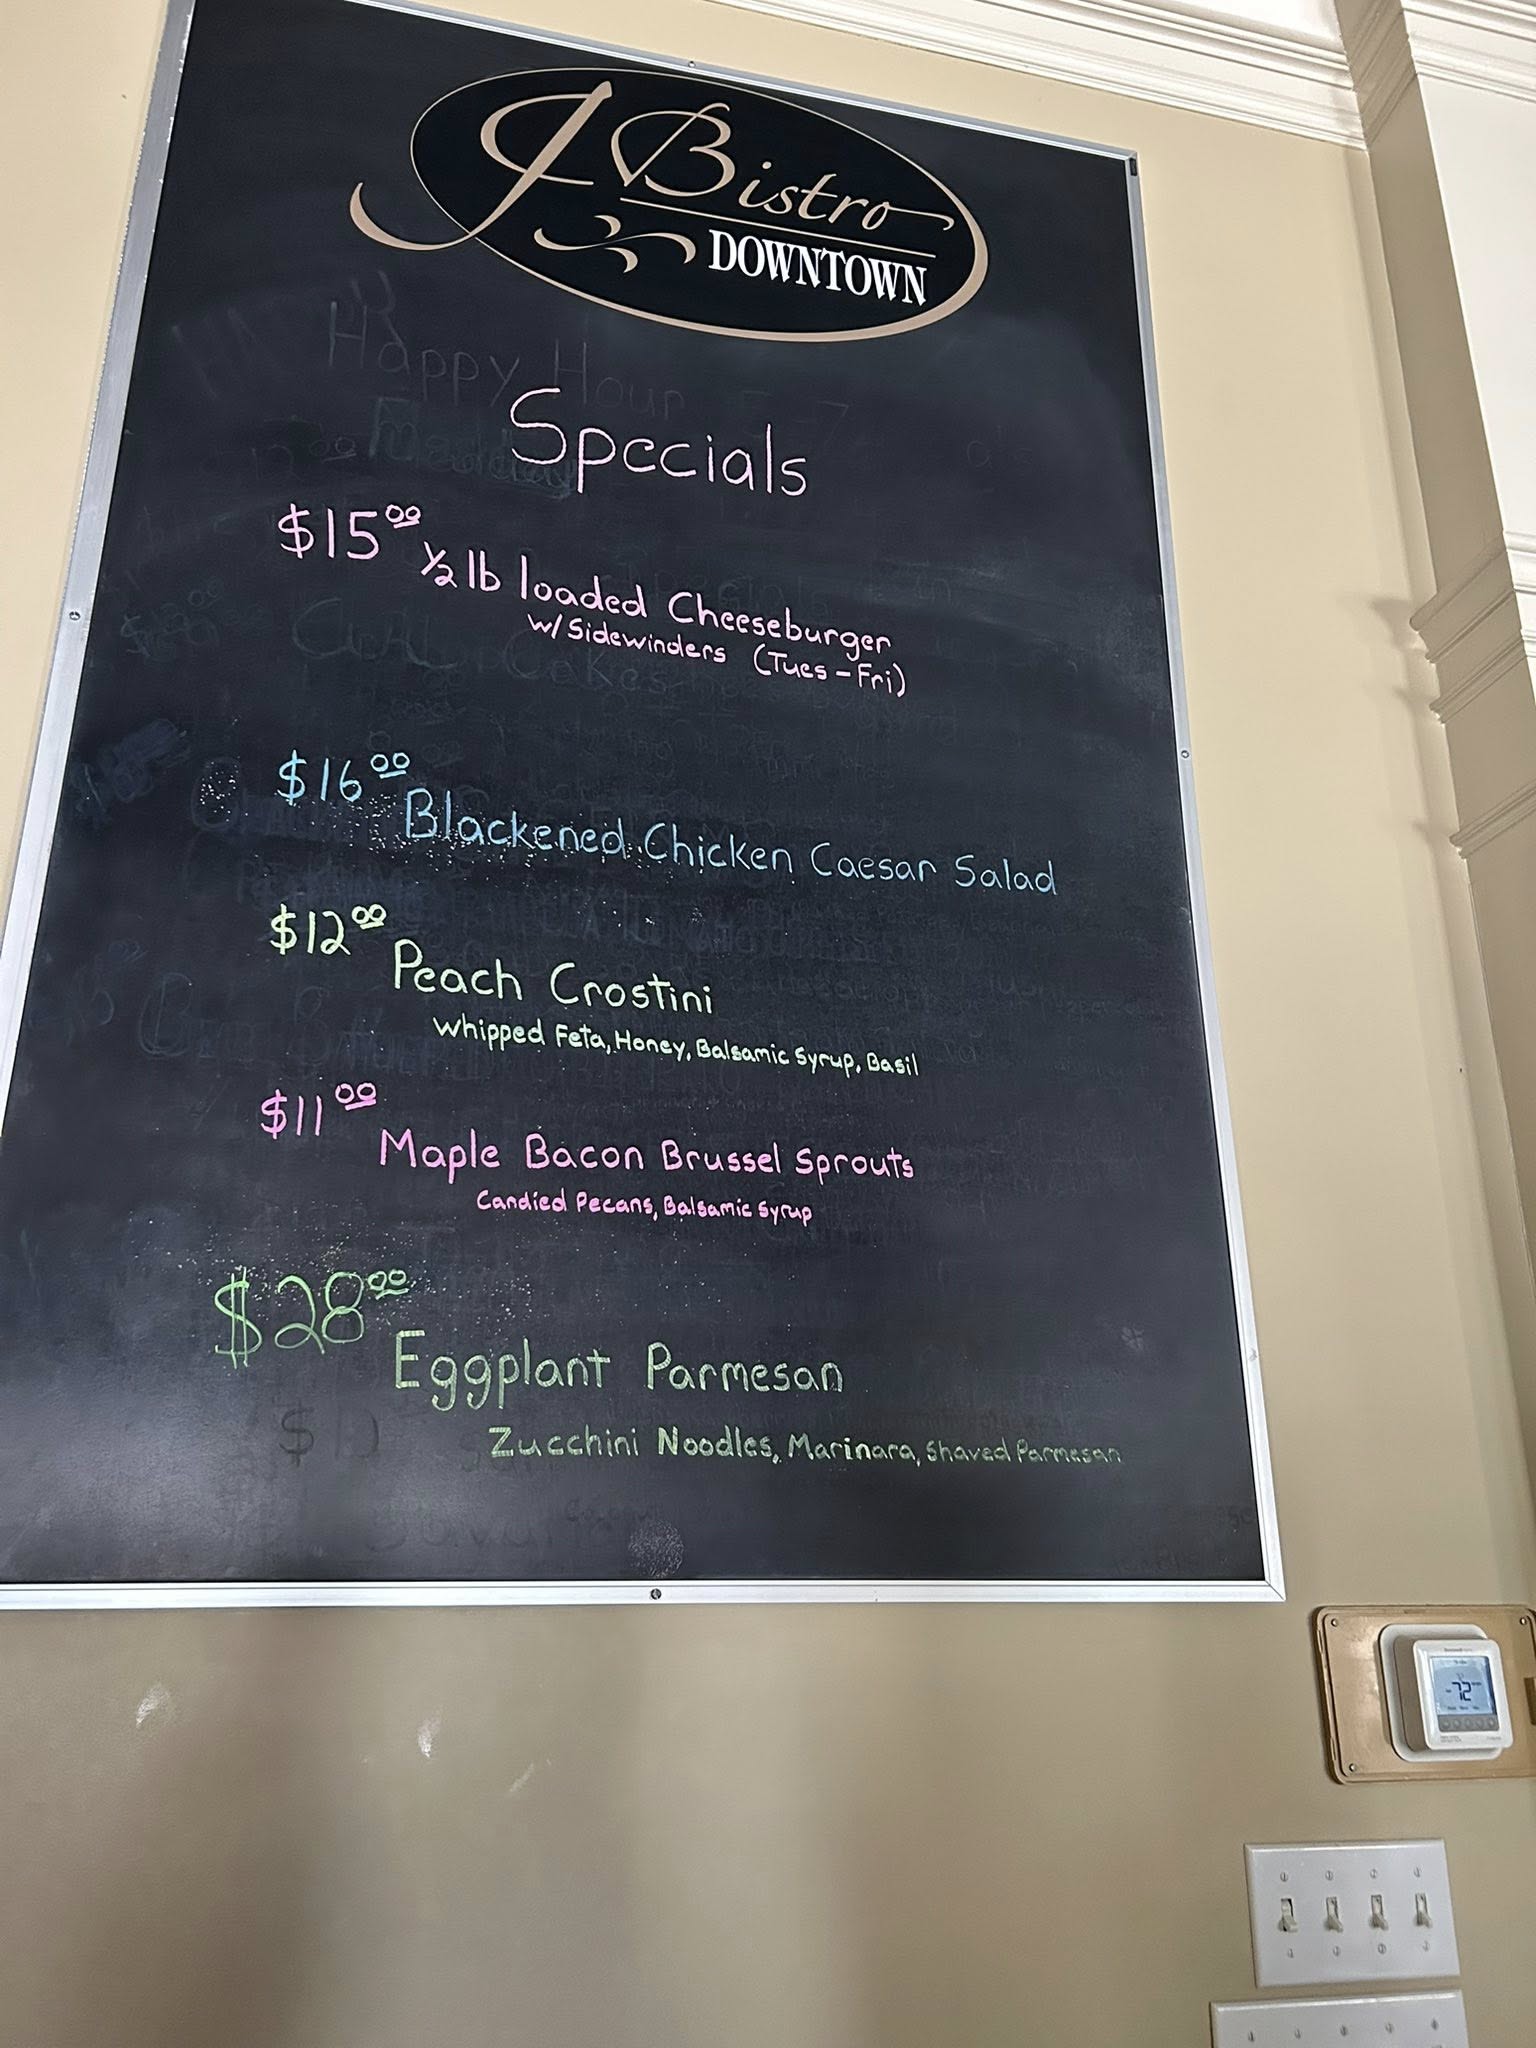 J Bistro
DOWNTOWN
Happy Hour 5-7
Specials
$15.00
1/2 lb loaded Cheeseburger
w/Sidewinders (Tues-Fri)
$16.00
Blackened Chicken Caesar Salad
$12.00
Peach Crostini
Whipped Feta, Honey, Balsamic Syrup, Basil
$11.00
Maple Bacon Brussel Sprouts
Candied Pecans, Balsamic Syrup
$28.00
Eggplant Parmesan
Zucchini Noodles, Marinara, Shaved Parmesan
72